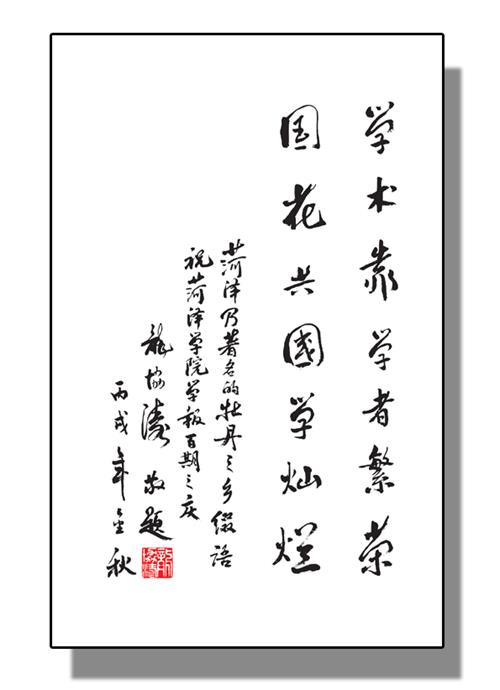 学术靠学者繁荣
国花共國学灿烂
菏泽乃著名的牡丹之乡缀语
祝菏泽学院学报百期之庆
龍协涛 敬题
丙戌年金秋
龍协涛